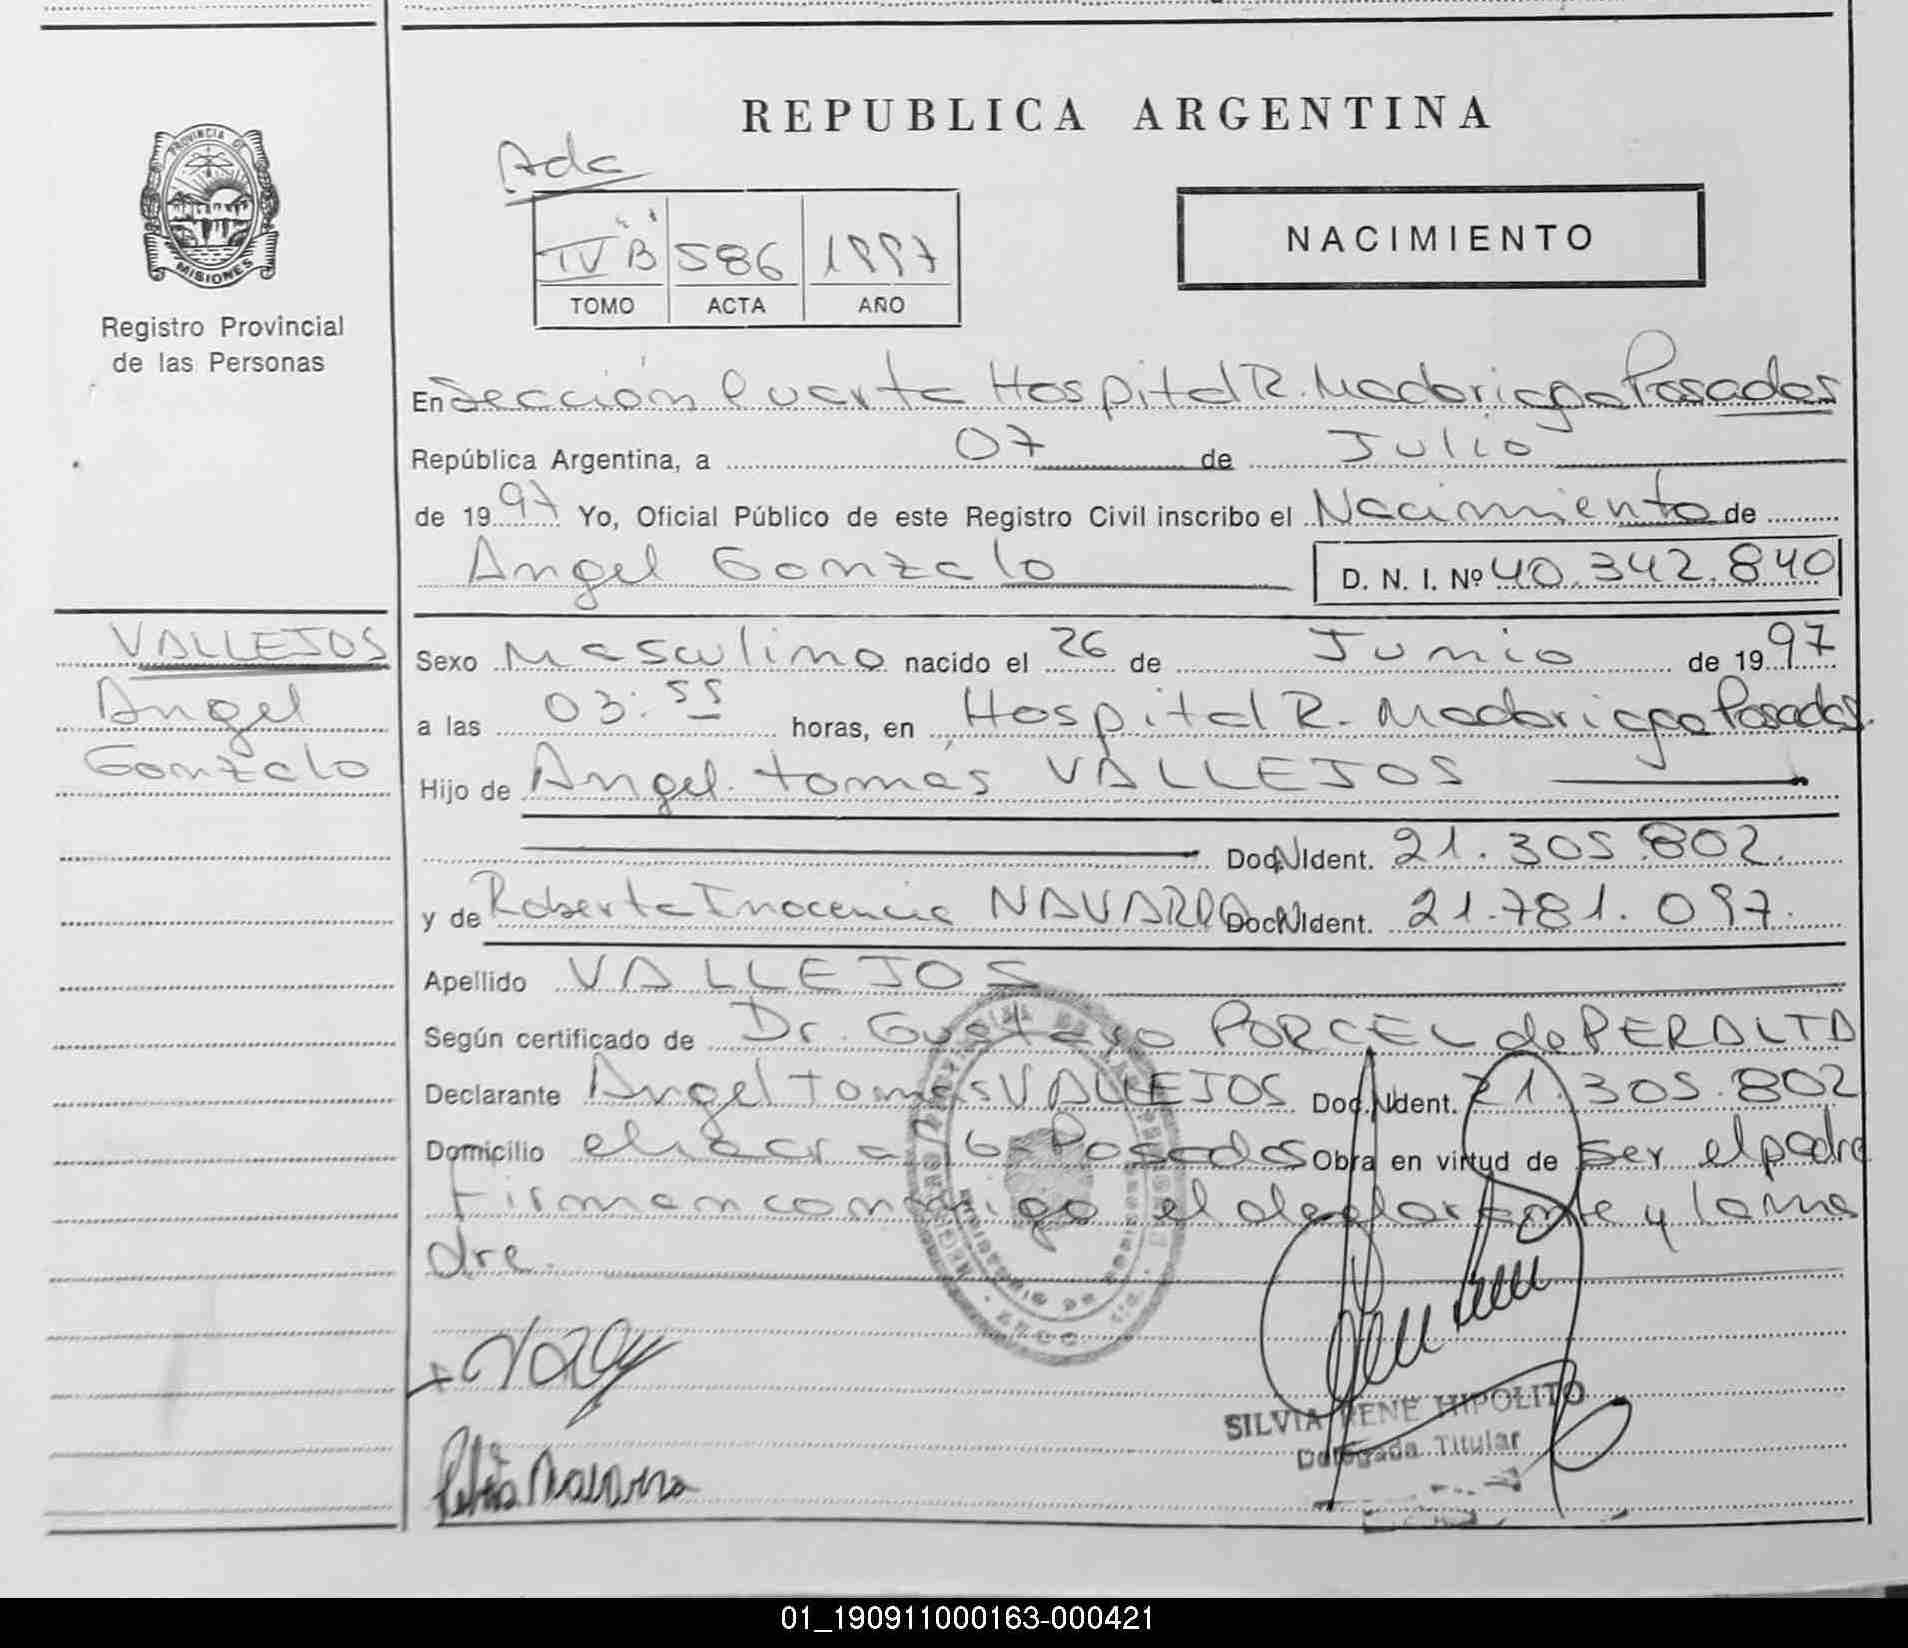 REPUBLICA ARGENTINA
PROVINCIA DE
MISIONES
Registro Provincial
de las Personas
Ada
IV "B" 586 1997
TOMO ACTA AÑO
NACIMIENTO
En Sección Cuarta Hospital R. Madariaga Posadas
República Argentina, a 07 de Julio
de 1997 Yo, Oficial Público de este Registro Civil inscribo el Nacimiento de
Angel Gonzalo D. N. I. Nº 40.342.840
VALLEJOS
Angel
Gonzalo
Sexo Masculino nacido el 26 de Junio de 1997
a las 03:55 horas, en Hospital R. Madariaga Posadas.
Hijo de Angel tomás VALLEJOS
Doc. Ident. 21.305.802.
y de Roberta Inocencia NAVARRO Doc. Ident. 21.781.097.
Apellido VALLEJOS
Según certificado de Dr. Gustavo PORCEL de PERALTA
Declarante Angel tomas VALLEJOS Doc. Ident. 21.305.802
Domicilio chacra Posadas Obra en virtud de ser el padre
firman conmigo el declarante y la ma
dre.
Navarro
SILVIA IRENE HIPOLITO
Delegada Titular
01_190911000163-000421